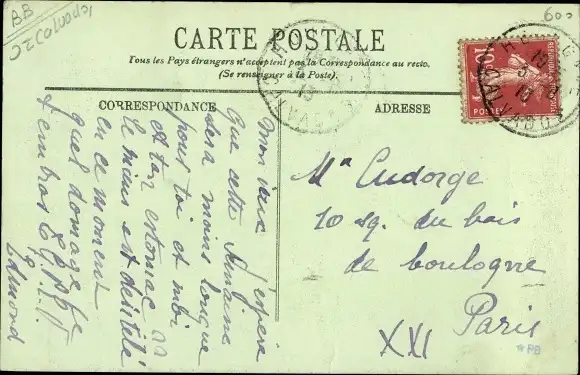 BB
600
CARTE POSTALE
Tous les Pays étrangers n'acceptent pas la Correspondance au recto.
(Se renseigner à la Poste).
CORRESPONDANCE
ADRESSE
Mon vieux J'espère
que cette semaine
sera moins longue
pour toi et moi
et ton estomac
Le miens est détitélé
en ce moment
quel domage
t'embras
Edmond
Mr Cudorge
10 sq. du bois
de boulogne
Paris
XXI
REPUBLIQUE FRANÇAISE
10
POSTES
CALVADOS
CALVADOS
PB